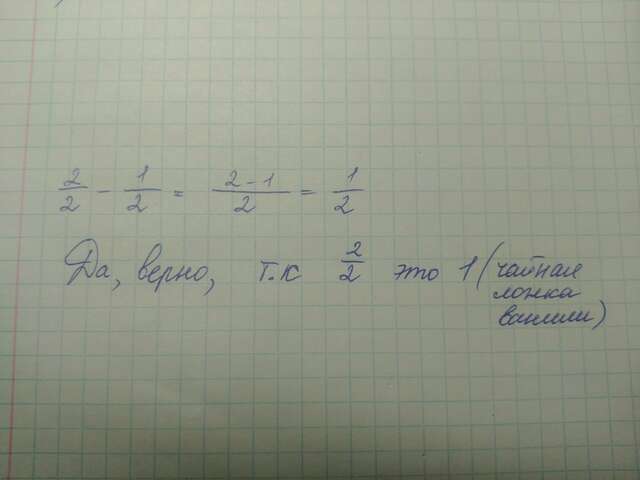 2/2 - 1/2 = 2-1/2 = 1/2
Да, верно, т.к 2/2 это 1 (чайная
ложка
ванили)